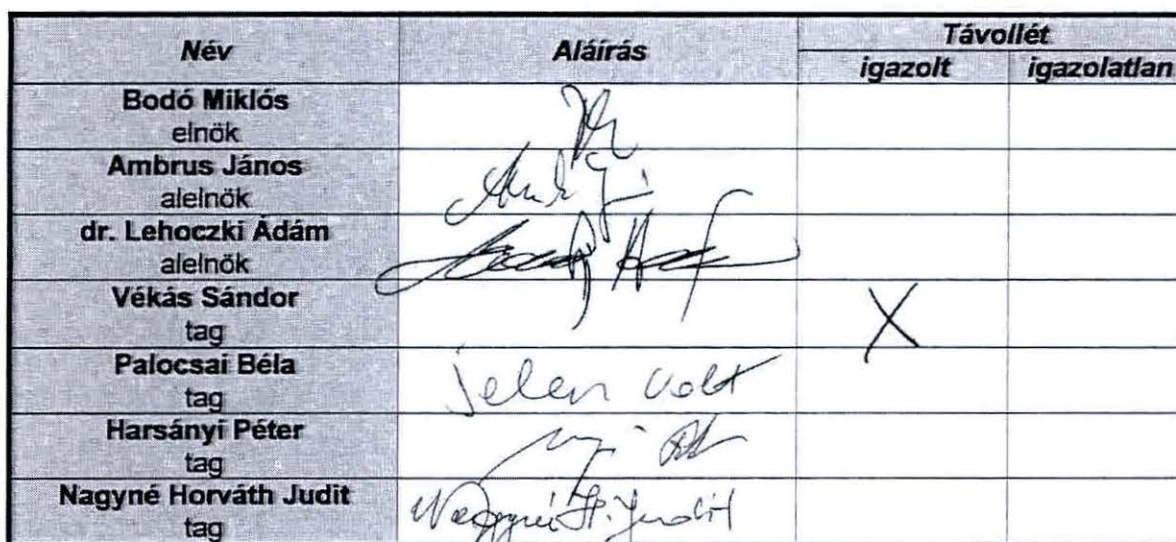 Név Aláírás Távollét
igazolt igazolatlan
Bodó Miklós
elnök
Ambrus János
alelnök
dr. Lehoczki Ádám
alelnök
Vékás Sándor
tag
X
Palocsai Béla
tag
jelen volt
Harsányi Péter
tag
Nagyné Horváth Judit
tag
Nagyné H. Judit